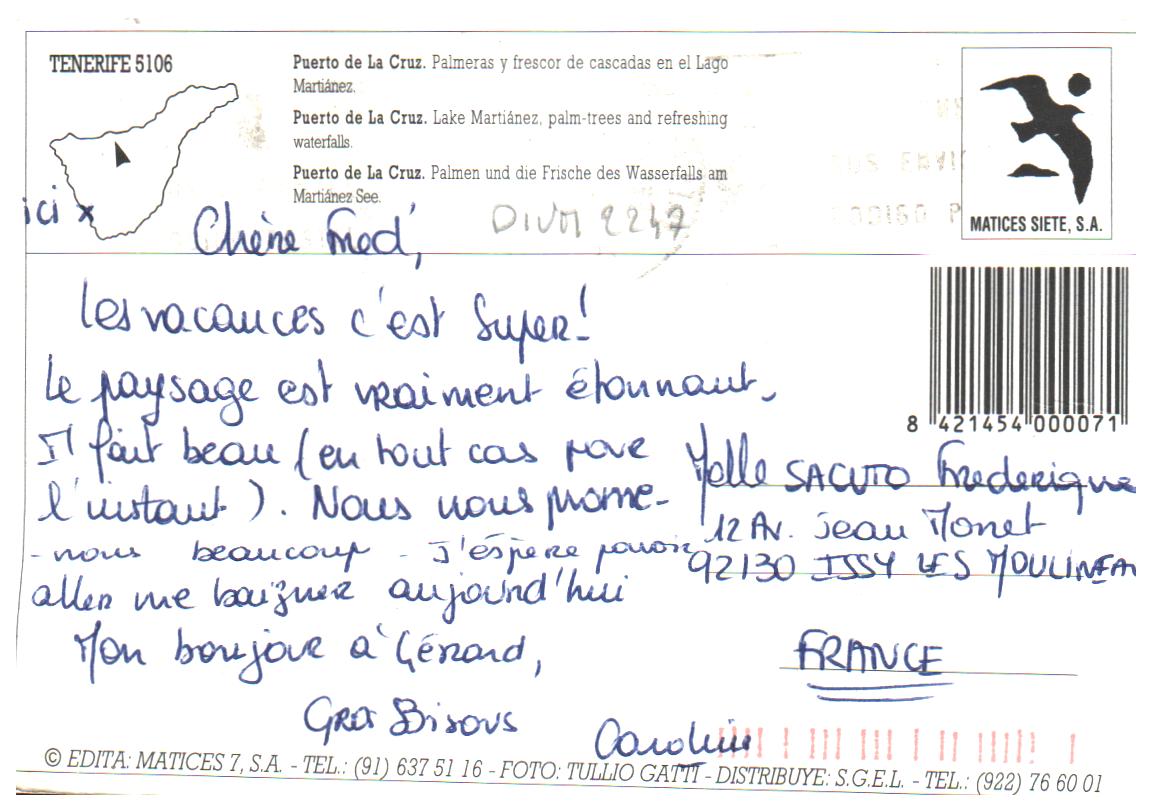 TENERIFE 5106
Puerto de La Cruz. Palmeras y frescor de cascadas en el Lago
Martiánez.
Puerto de La Cruz. Lake Martiánez, palm-trees and refreshing
waterfalls.
Puerto de La Cruz. Palmen und die Frische des Wasserfalls am
Martiánez See.
MATICES SIETE, S.A.
ici x
DIVM 2247
Chère Fred,
les vacances c'est Super!
Le paysage est vraiment étonnant.
Il fait beau (en tout cas pour
l'instant). Nous nous prome-
-nous beaucoup - J'espère pouvoir
aller me baigner aujourd'hui
Mon bonjour à Gérard,
Gros Bisous
Caroline
8 421454 000071
Melle SACUTO Frederique
12 Av. Jean Monet
92130 ISSY LES MOULINEA
FRANCE
© EDITA: MATICES 7, S.A. - TEL.: (91) 637 51 16 - FOTO: TULLIO GATTI - DISTRIBUYE: S.G.E.L. - TEL.: (922) 76 60 01